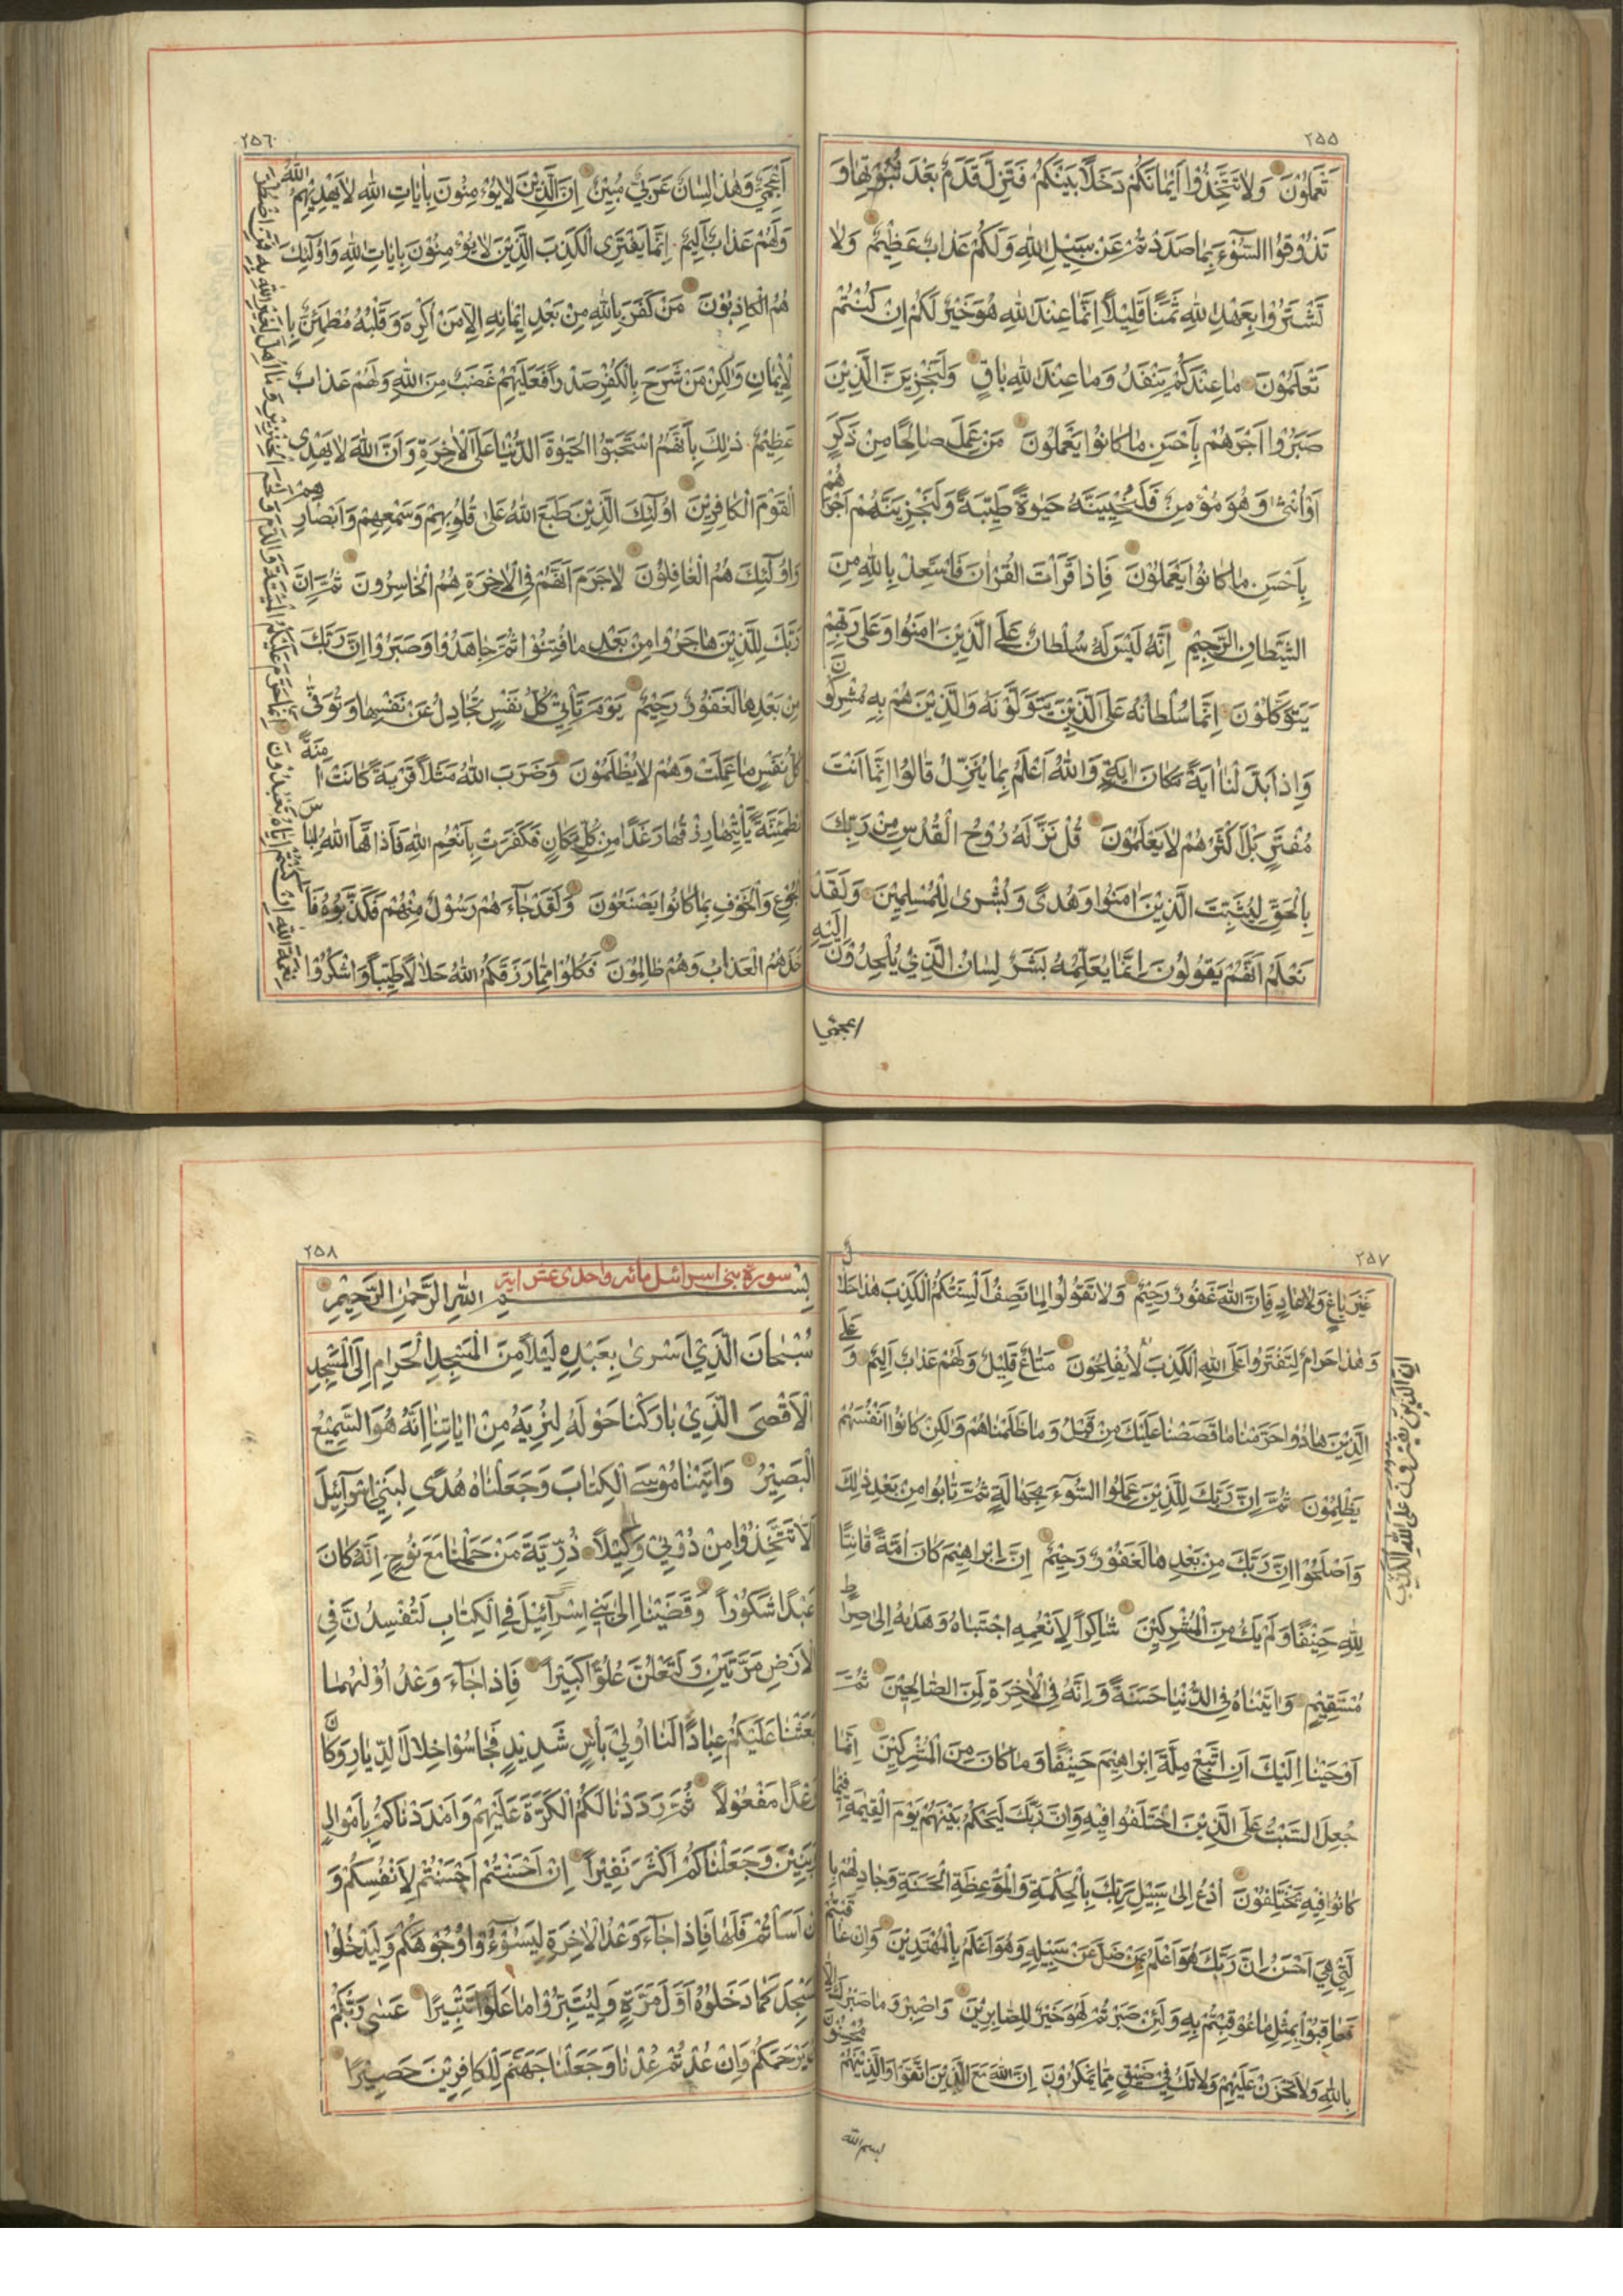 ٢٥٥
تَعْمَلُوْنَ وَلَا تَتَّخِذُوْا اَيْمَانَكُمْ دَخَلًا بَيْنَكُمْ فَتَزِلَّ قَدَمٌ بَعْدَ ثُبُوْتِهَا وَ
تَذُوْقُوا السُّوْٓءَ بِمَا صَدَدْتُمْ عَنْ سَبِيْلِ اللّٰهِ وَلَكُمْ عَذَابٌ عَظِيْمٌ وَلَا
تَشْتَرُوْا بِعَهْدِ اللّٰهِ ثَمَنًا قَلِيْلًا اِنَّمَا عِنْدَ اللّٰهِ هُوَ خَيْرٌ لَكُمْ اِنْ كُنْتُمْ
تَعْلَمُوْنَ مَا عِنْدَكُمْ يَنْفَدُ وَمَا عِنْدَ اللّٰهِ بَاقٍ وَلَنَجْزِيَنَّ الَّذِيْنَ
صَبَرُوْا اَجْرَهُمْ بِاَحْسَنِ مَا كَانُوْا يَعْمَلُوْنَ مَنْ عَمِلَ صَالِحًا مِنْ ذَكَرٍ
اَوْ اُنْثٰى وَهُوَ مُؤْمِنٌ فَلَنُحْيِيَنَّهُ حَيٰوةً طَيِّبَةً وَلَنَجْزِيَنَّهُمْ اَجْرَهُمْ
بِاَحْسَنِ مَا كَانُوْا يَعْمَلُوْنَ فَاِذَا قَرَأْتَ الْقُرْاٰنَ فَاسْتَعِذْ بِاللّٰهِ مِنَ
الشَّيْطَانِ الرَّجِيْمِ اِنَّهُ لَيْسَ لَهُ سُلْطَانٌ عَلَى الَّذِيْنَ اٰمَنُوْا وَعَلٰى رَبِّهِمْ
يَتَوَكَّلُوْنَ اِنَّمَا سُلْطَانُهُ عَلَى الَّذِيْنَ يَتَوَلَّوْنَهُ وَالَّذِيْنَ هُمْ بِهِ مُشْرِكُوْنَ
وَاِذَا بَدَّلْنَا اٰيَةً مَكَانَ اٰيَةٍ وَاللّٰهُ اَعْلَمُ بِمَا يُنَزِّلُ قَالُوْا اِنَّمَا اَنْتَ
مُفْتَرٍ بَلْ اَكْثَرُهُمْ لَا يَعْلَمُوْنَ قُلْ نَزَّلَهُ رُوْحُ الْقُدُسِ مِنْ رَبِّكَ
بِالْحَقِّ لِيُثَبِّتَ الَّذِيْنَ اٰمَنُوْا وَهُدًى وَبُشْرٰى لِلْمُسْلِمِيْنَ وَلَقَدْ
نَعْلَمُ اَنَّهُمْ يَقُوْلُوْنَ اِنَّمَا يُعَلِّمُهُ بَشَرٌ لِسَانُ الَّذِيْ يُلْحِدُوْنَ اِلَيْهِ
اعجمي
٢٥٦
اَعْجَمِيٌّ وَهٰذَا لِسَانٌ عَرَبِيٌّ مُبِيْنٌ اِنَّ الَّذِيْنَ لَا يُؤْمِنُوْنَ بِاٰيَاتِ اللّٰهِ لَا يَهْدِيْهِمُ اللّٰهُ
وَلَهُمْ عَذَابٌ اَلِيْمٌ اِنَّمَا يَفْتَرِى الْكَذِبَ الَّذِيْنَ لَا يُؤْمِنُوْنَ بِاٰيَاتِ اللّٰهِ وَاُولٰٓئِكَ
هُمُ الْكَاذِبُوْنَ مَنْ كَفَرَ بِاللّٰهِ مِنْ بَعْدِ اِيْمَانِهِ اِلَّا مَنْ اُكْرِهَ وَقَلْبُهُ مُطْمَئِنٌّ بِا
لْاِيْمَانِ وَلٰكِنْ مَنْ شَرَحَ بِالْكُفْرِ صَدْرًا فَعَلَيْهِمْ غَضَبٌ مِنَ اللّٰهِ وَلَهُمْ عَذَابٌ
عَظِيْمٌ ذٰلِكَ بِاَنَّهُمُ اسْتَحَبُّوا الْحَيٰوةَ الدُّنْيَا عَلَى الْاٰخِرَةِ وَاَنَّ اللّٰهَ لَا يَهْدِى
الْقَوْمَ الْكَافِرِيْنَ اُولٰٓئِكَ الَّذِيْنَ طَبَعَ اللّٰهُ عَلٰى قُلُوْبِهِمْ وَسَمْعِهِمْ وَاَبْصَارِهِمْ
وَاُولٰٓئِكَ هُمُ الْغَافِلُوْنَ لَا جَرَمَ اَنَّهُمْ فِى الْاٰخِرَةِ هُمُ الْخَاسِرُوْنَ ثُمَّ اِنَّ
رَبَّكَ لِلَّذِيْنَ هَاجَرُوْا مِنْ بَعْدِ مَا فُتِنُوْا ثُمَّ جَاهَدُوْا وَصَبَرُوْا اِنَّ رَبَّكَ
مِنْ بَعْدِهَا لَغَفُوْرٌ رَحِيْمٌ يَوْمَ تَأْتِيْ كُلُّ نَفْسٍ تُجَادِلُ عَنْ نَفْسِهَا وَتُوَفّٰى
كُلُّ نَفْسٍ مَا عَمِلَتْ وَهُمْ لَا يُظْلَمُوْنَ وَضَرَبَ اللّٰهُ مَثَلًا قَرْيَةً كَانَتْ اٰمِنَةً
مُطْمَئِنَّةً يَأْتِيْهَا رِزْقُهَا رَغَدًا مِنْ كُلِّ مَكَانٍ فَكَفَرَتْ بِاَنْعُمِ اللّٰهِ فَاَذَاقَهَا اللّٰهُ لِبَاسَ
الْجُوْعِ وَالْخَوْفِ بِمَا كَانُوْا يَصْنَعُوْنَ وَلَقَدْ جَآءَهُمْ رَسُوْلٌ مِنْهُمْ فَكَذَّبُوْهُ فَاَ
خَذَهُمُ الْعَذَابُ وَهُمْ ظَالِمُوْنَ فَكُلُوْا مِمَّا رَزَقَكُمُ اللّٰهُ حَلَالًا طَيِّبًا وَاشْكُرُوْا
نِعْمَةَ اللّٰهِ اِنْ كُنْتُمْ اِيَّاهُ تَعْبُدُوْنَ اِنَّمَا حَرَّمَ عَلَيْكُمُ الْمَيْتَةَ وَالدَّمَ وَلَحْمَ الْخِنْزِيْرِ وَمَا اُهِلَّ لِغَيْرِ اللّٰهِ بِهِ فَمَنِ اضْطُرَّ
٢٥٧
غَيْرَ بَاغٍ وَلَا عَادٍ فَاِنَّ اللّٰهَ غَفُوْرٌ رَحِيْمٌ وَلَا تَقُوْلُوْا لِمَا تَصِفُ اَلْسِنَتُكُمُ الْكَذِبَ هٰذَا حَلَالٌ
وَهٰذَا حَرَامٌ لِتَفْتَرُوْا عَلَى اللّٰهِ الْكَذِبَ لَا يُفْلِحُوْنَ مَتَاعٌ قَلِيْلٌ وَلَهُمْ عَذَابٌ اَلِيْمٌ وَعَلَى
اِنَّ الَّذِيْنَ يَفْتَرُوْنَ عَلَى اللّٰهِ الْكَذِبَ
الَّذِيْنَ هَادُوْا حَرَّمْنَا مَا قَصَصْنَا عَلَيْكَ مِنْ قَبْلُ وَمَا ظَلَمْنَاهُمْ وَلٰكِنْ كَانُوْا اَنْفُسَهُمْ
يَظْلِمُوْنَ ثُمَّ اِنَّ رَبَّكَ لِلَّذِيْنَ عَمِلُوا السُّوْٓءَ بِجَهَالَةٍ ثُمَّ تَابُوْا مِنْ بَعْدِ ذٰلِكَ
وَاَصْلَحُوْا اِنَّ رَبَّكَ مِنْ بَعْدِهَا لَغَفُوْرٌ رَحِيْمٌ اِنَّ اِبْرَاهِيْمَ كَانَ اُمَّةً قَانِتًا
لِلّٰهِ حَنِيْفًا وَلَمْ يَكُ مِنَ الْمُشْرِكِيْنَ شَاكِرًا لِاَنْعُمِهِ اجْتَبَاهُ وَهَدٰيهُ اِلٰى صِرَاطٍ
مُسْتَقِيْمٍ وَاٰتَيْنَاهُ فِى الدُّنْيَا حَسَنَةً وَاِنَّهُ فِى الْاٰخِرَةِ لَمِنَ الصَّالِحِيْنَ ثُمَّ
اَوْحَيْنَا اِلَيْكَ اَنِ اتَّبِعْ مِلَّةَ اِبْرَاهِيْمَ حَنِيْفًا وَمَا كَانَ مِنَ الْمُشْرِكِيْنَ اِنَّمَا
جُعِلَ السَّبْتُ عَلَى الَّذِيْنَ اخْتَلَفُوْا فِيْهِ وَاِنَّ رَبَّكَ لَيَحْكُمُ بَيْنَهُمْ يَوْمَ الْقِيٰمَةِ فِيْمَا
كَانُوْا فِيْهِ يَخْتَلِفُوْنَ اُدْعُ اِلٰى سَبِيْلِ رَبِّكَ بِالْحِكْمَةِ وَالْمَوْعِظَةِ الْحَسَنَةِ وَجَادِلْهُمْ بِا
لَّتِيْ هِيَ اَحْسَنُ اِنَّ رَبَّكَ هُوَ اَعْلَمُ بِمَنْ ضَلَّ عَنْ سَبِيْلِهِ وَهُوَ اَعْلَمُ بِالْمُهْتَدِيْنَ وَاِنْ عَاقَبْتُمْ
فَعَاقِبُوْا بِمِثْلِ مَا عُوْقِبْتُمْ بِهِ وَلَئِنْ صَبَرْتُمْ لَهُوَ خَيْرٌ لِلصَّابِرِيْنَ وَاصْبِرْ وَمَا صَبْرُكَ اِلَّا
بِاللّٰهِ وَلَا تَحْزَنْ عَلَيْهِمْ وَلَا تَكُ فِيْ ضَيْقٍ مِمَّا يَمْكُرُوْنَ اِنَّ اللّٰهَ مَعَ الَّذِيْنَ اتَّقَوْا وَالَّذِيْنَ هُمْ مُحْسِنُوْنَ
بسم الله
٢٥٨
سورة بني اسرائيل مائة واحدى عشر اية
بِسْمِ اللّٰهِ الرَّحْمٰنِ الرَّحِيْمِ
سُبْحَانَ الَّذِيْ اَسْرٰى بِعَبْدِهِ لَيْلًا مِنَ الْمَسْجِدِ الْحَرَامِ اِلَى الْمَسْجِدِ
الْاَقْصَى الَّذِيْ بَارَكْنَا حَوْلَهُ لِنُرِيَهُ مِنْ اٰيَاتِنَا اِنَّهُ هُوَ السَّمِيْعُ
الْبَصِيْرُ وَاٰتَيْنَا مُوْسَى الْكِتَابَ وَجَعَلْنَاهُ هُدًى لِبَنِيْ اِسْرَآئِيْلَ
اَلَّا تَتَّخِذُوْا مِنْ دُوْنِيْ وَكِيْلًا ذُرِّيَّةَ مَنْ حَمَلْنَا مَعَ نُوْحٍ اِنَّهُ كَانَ
عَبْدًا شَكُوْرًا وَقَضَيْنَا اِلٰى بَنِيْ اِسْرَآئِيْلَ فِى الْكِتَابِ لَتُفْسِدُنَّ فِى
الْاَرْضِ مَرَّتَيْنِ وَلَتَعْلُنَّ عُلُوًّا كَبِيْرًا فَاِذَا جَآءَ وَعْدُ اُوْلٰيهُمَا
بَعَثْنَا عَلَيْكُمْ عِبَادًا لَنَا اُولِيْ بَأْسٍ شَدِيْدٍ فَجَاسُوْا خِلَالَ الدِّيَارِ وَكَانَ
وَعْدًا مَفْعُوْلًا ثُمَّ رَدَدْنَا لَكُمُ الْكَرَّةَ عَلَيْهِمْ وَاَمْدَدْنَاكُمْ بِاَمْوَالٍ
وَبَنِيْنَ وَجَعَلْنَاكُمْ اَكْثَرَ نَفِيْرًا اِنْ اَحْسَنْتُمْ اَحْسَنْتُمْ لِاَنْفُسِكُمْ وَ
اِنْ اَسَأْتُمْ فَلَهَا فَاِذَا جَآءَ وَعْدُ الْاٰخِرَةِ لِيَسُوْٓءُوْا وُجُوْهَكُمْ وَلِيَدْخُلُوا
الْمَسْجِدَ كَمَا دَخَلُوْهُ اَوَّلَ مَرَّةٍ وَلِيُتَبِّرُوْا مَا عَلَوْا تَتْبِيْرًا عَسٰى رَبُّكُمْ
اَنْ يَرْحَمَكُمْ وَاِنْ عُدْتُمْ عُدْنَا وَجَعَلْنَا جَهَنَّمَ لِلْكَافِرِيْنَ حَصِيْرًا